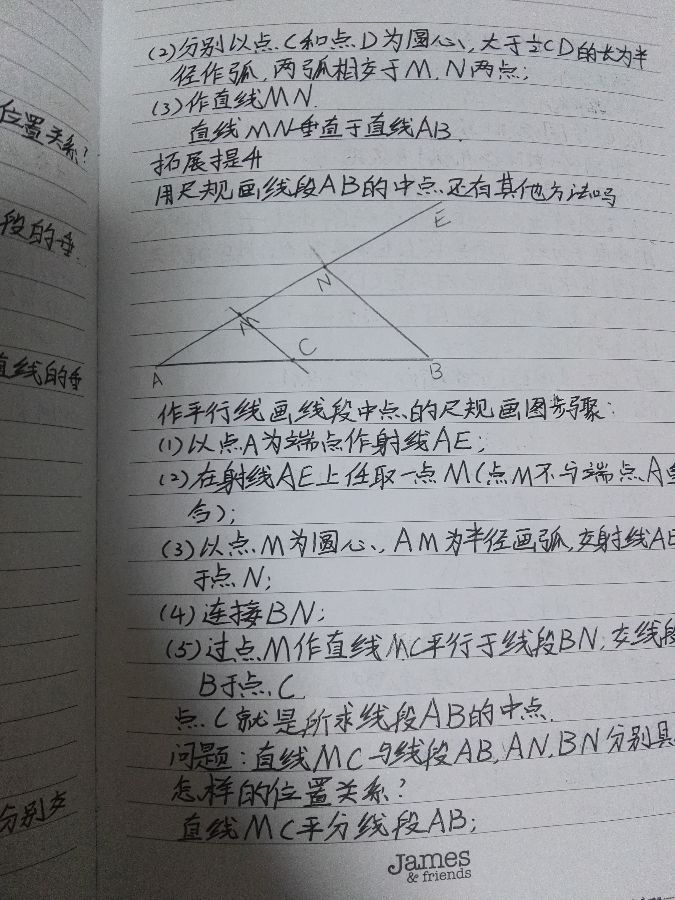 (2)分别以点C和点D为圆心,大于½CD的长为半
径作弧,两弧相交于M,N两点;
(3)作直线MN.
直线MN垂直于直线AB.
位置关系?
拓展提升
用尺规画线段AB的中点还有其他方法吗
段的垂
E
N
M
C
A
B
直线的垂
作平行线画线段中点的尺规画图步骤:
(1)以点A为端点作射线AE;
(2)在射线AE上任取一点M(点M不与端点A重
合);
(3)以点M为圆心,AM为半径画弧,交射线AE
于点N;
(4)连接BN;
(5)过点M作直线MC平行于线段BN,交线段
B于点C.
点C就是所求线段AB的中点.
问题:直线MC与线段AB,AN,BN分别具
怎样的位置关系?
分别交
直线MC平分线段AB;
James
& friends